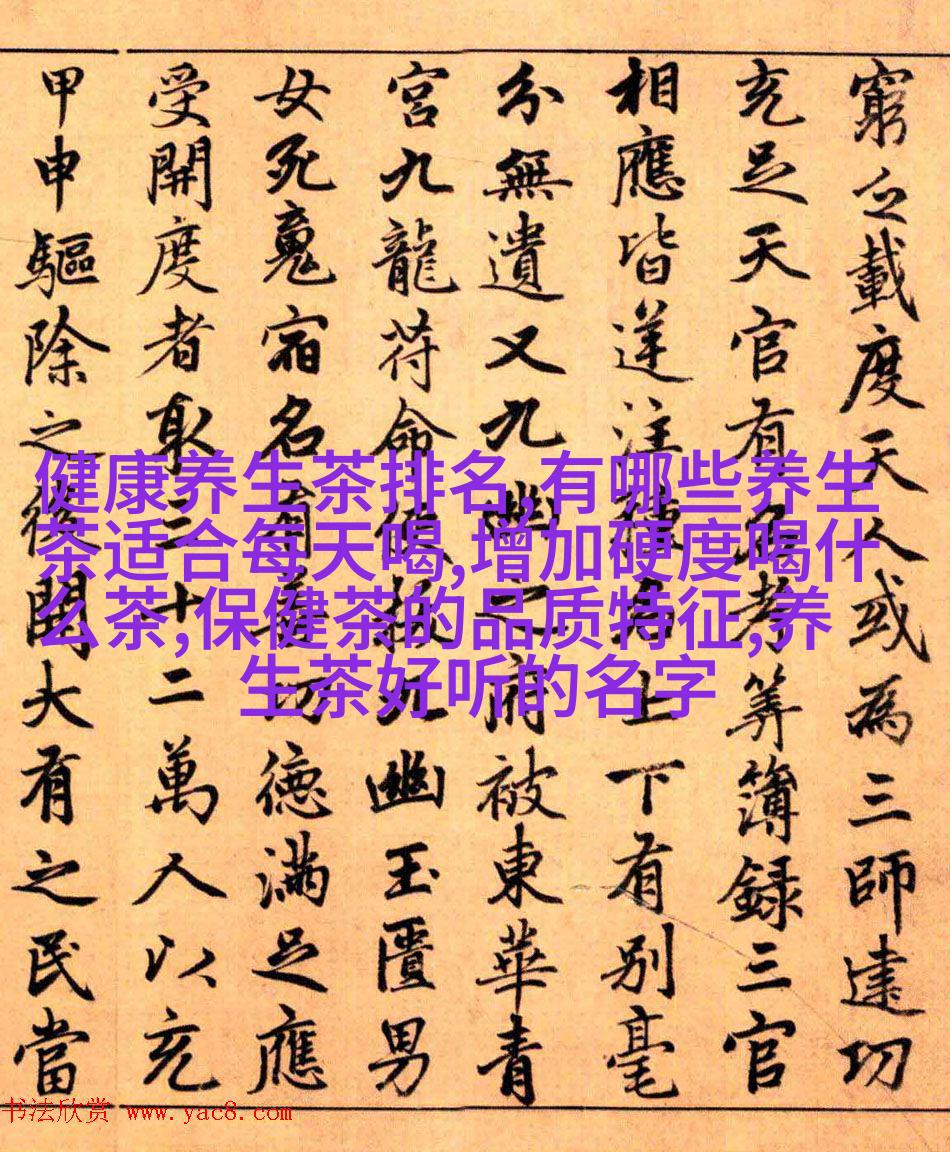 窮之載度天人或為三師建功
充足天官有考筭簿錄三官
相應皆逆注名上下有別毫
分無遺又九幽之府被東華青
宮九龍符命使拔九幽玉匱男
女死魂宿名有善功德滿足應
受開度者取三十二萬人以充
甲申驅除之後開大有之民當
健康养生茶排名,有哪些养生
茶适合每天喝,增加硬度喝什
么茶,保健茶的品质特征,养
生茶好听的名字
书法欣赏 www.yac8.com